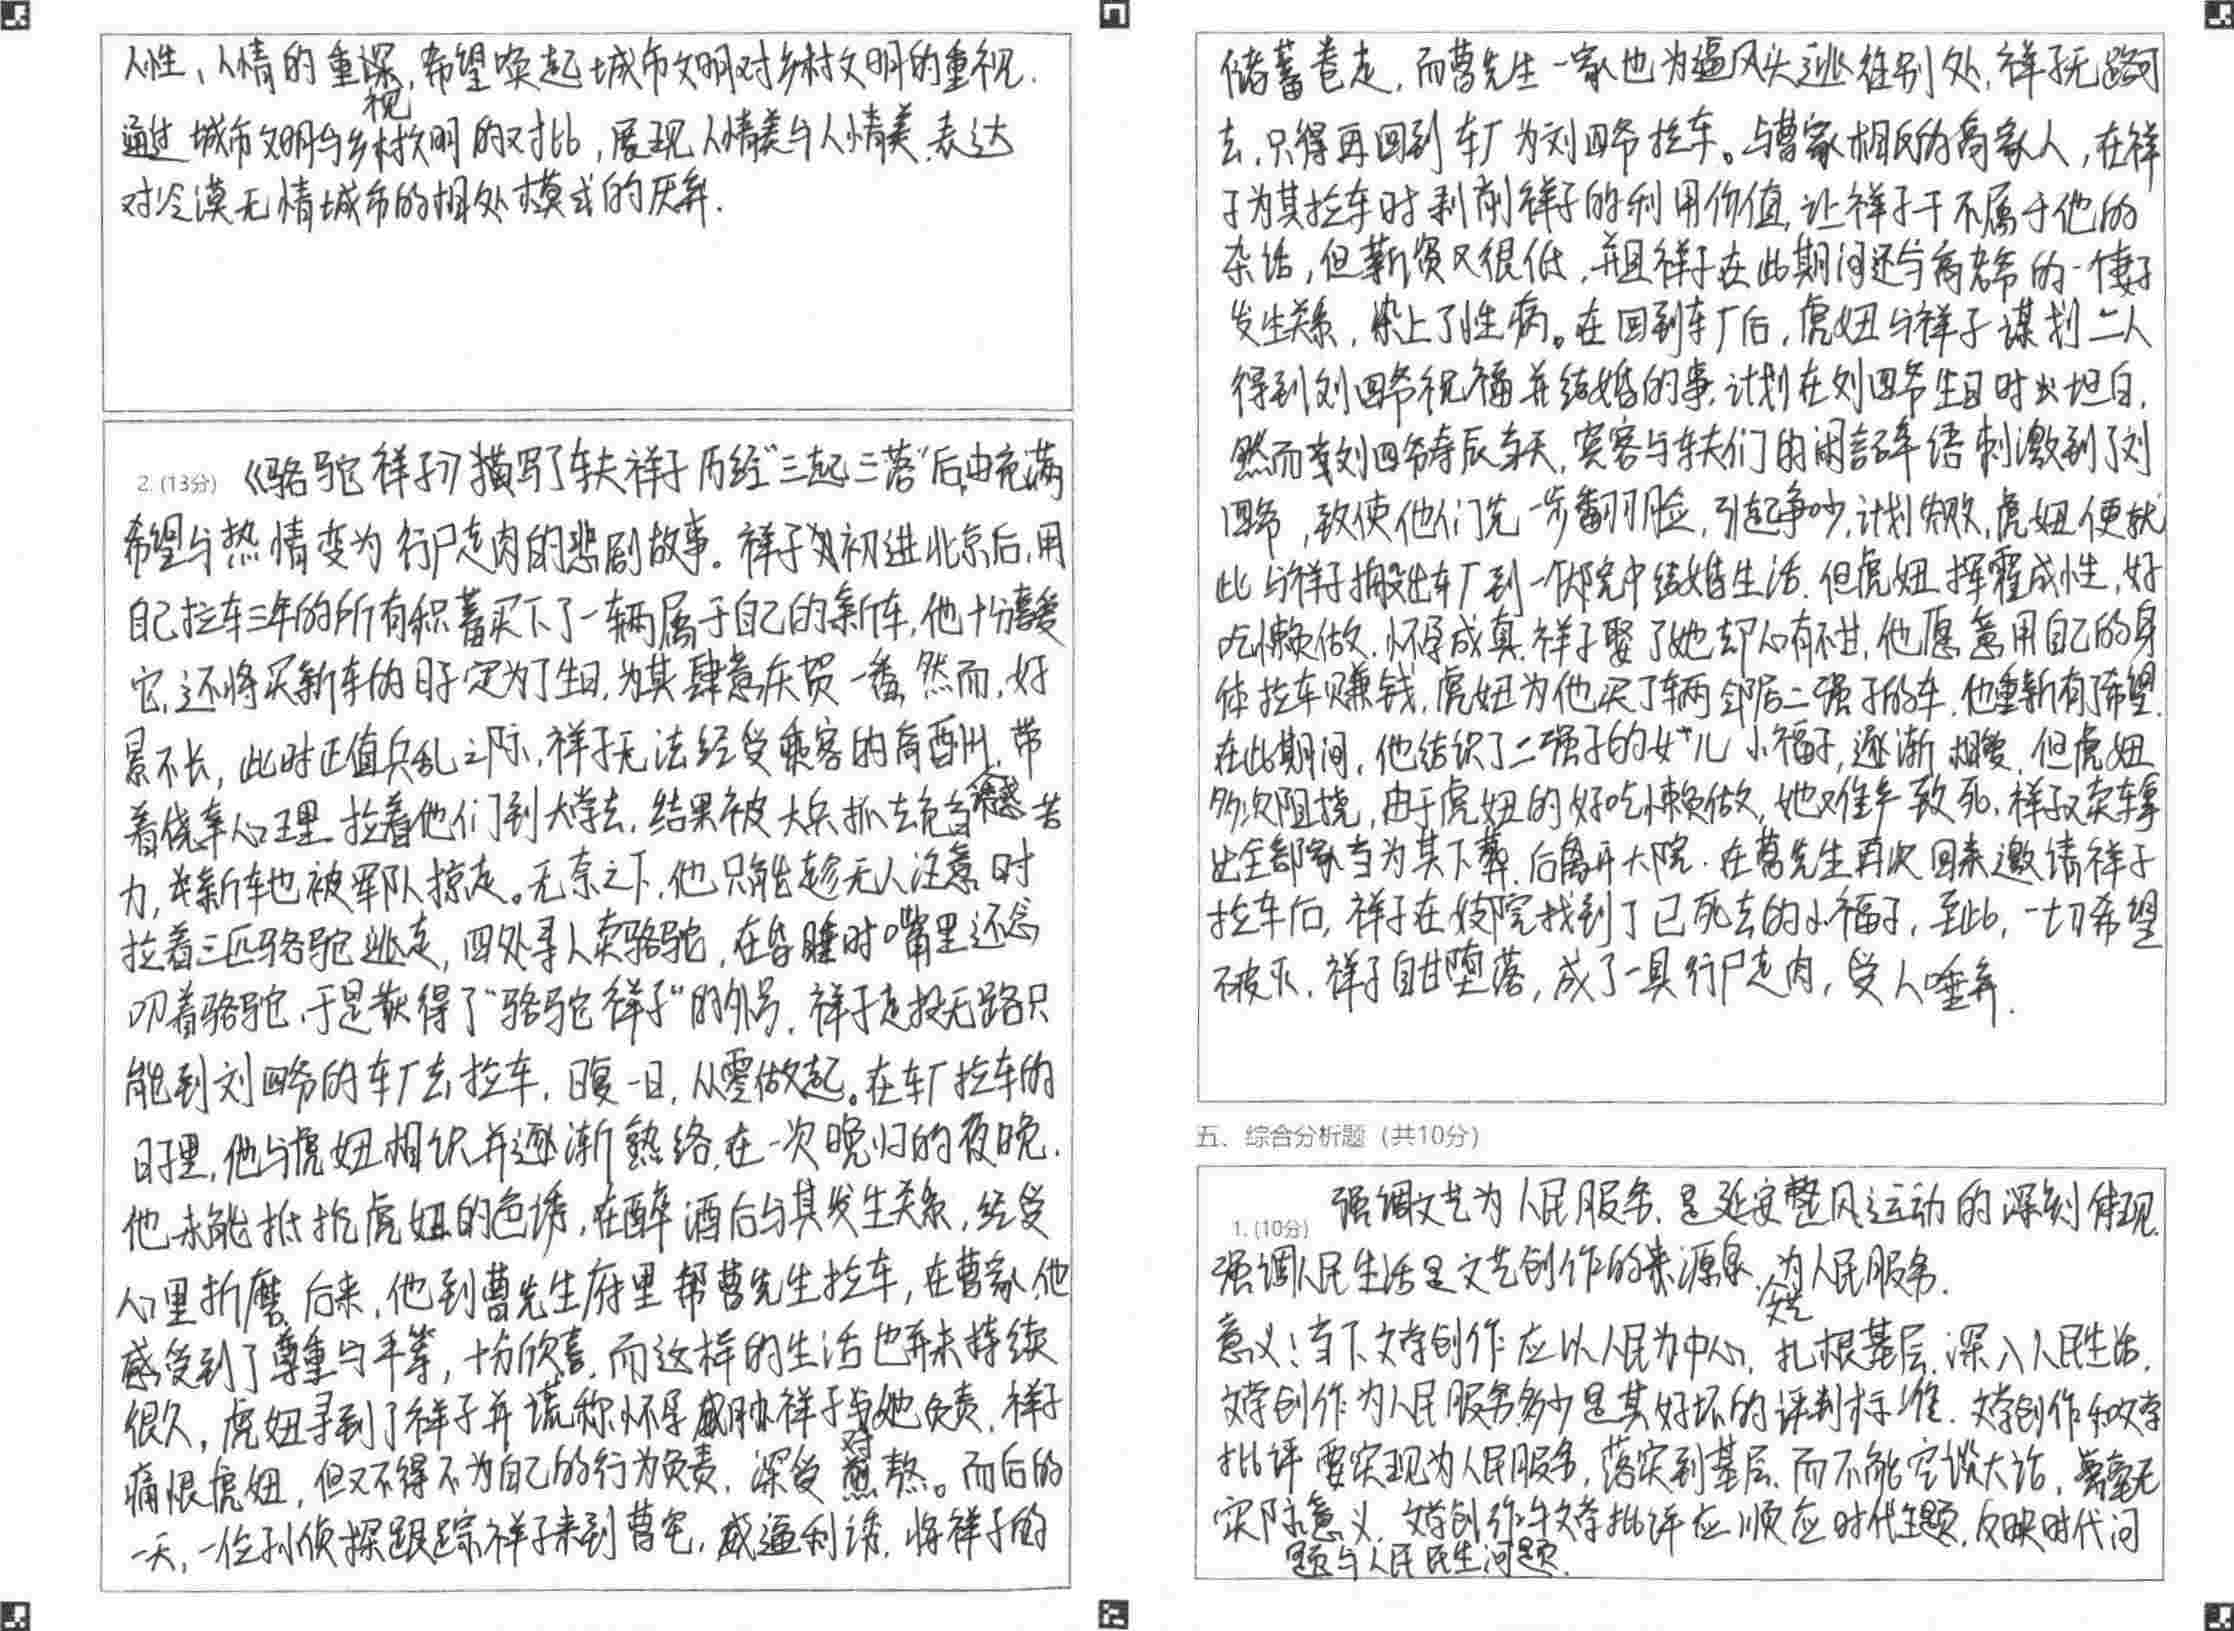 人性、人情的重视,希望唤起城市文明对乡村文明的重视.
通过城市文明与乡村文明的对比,展现人情美与人情美.表达
对冷漠无情城市的相处模式的厌弃.
2. (13分) 《骆驼祥子》描写了车夫祥子历经"三起三落"后,由充满
希望与热情变为行尸走肉的悲剧故事。祥子初进北京后,用
自己拉车三年的所有积蓄买下了一辆属于自己的新车,他十分喜爱
它,还将买新车的日子定为了生日,为其肆意庆贺一番.然而,好
景不长,此时正值兵乱之际,祥子无法经受乘客的高酬,带
着侥幸心理拉着他们到大学去,结果被大兵抓去充当苦
力,新车也被军队掠走。无奈之下,他只能趁无人注意时
拉着三匹骆驼逃走,四处寻人卖骆驼,在昏睡时嘴里还念
叨着骆驼,于是获得了"骆驼祥子"的外号.祥子走投无路只
能到刘四爷的车厂去拉车,日复一日,从零做起。在车厂拉车的
日子里,他与虎妞相识并逐渐熟络,在一次晚归的夜晚,
他未能抵抗虎妞的色诱,在醉酒后与其发生关系,经受
心里折磨.后来,他到曹先生府里帮曹先生拉车,在曹家,他
感受到了尊重与平等,十分欣喜.而这样的生活也并未持续
很久,虎妞寻到了祥子并谎称怀孕威胁祥子对她负责.祥子
痛恨虎妞,但又不得不为自己的行为负责,深受煎熬。而后的
一天,一位孙侦探跟踪祥子来到曹宅,威逼利诱,将祥子的
储蓄卷走,而曹先生一家也为逼风头逃往别处,祥子无路可
去,只得再回到车厂为刘四爷拉车。与曹家相反的高家人,在祥
子为其拉车时剥削祥子的利用价值,让祥子干不属于他的
杂活,但薪资又很低,并且祥子在此期间还与高老爷的一个妻子
发生关系,染上了性病。在回到车厂后,虎妞与祥子谋划二人
得到刘四爷祝福并结婚的事,计划在刘四爷生日时坦白,
然而刘四爷寿辰当天,宾客与车夫们的闲言碎语刺激到了刘
四爷,致使他们先一步翻脸,引起争吵,计划失败,虎妞便就
此与祥子搬出车厂到一个大院中结婚生活.但虎妞挥霍成性,好
吃懒做.怀孕成真.祥子娶了她却心有不甘,他愿意用自己的身
体拉车赚钱,虎妞为他买了车两邻居二强子的车.他重新有了希望.
在此期间,他结识了二强子的女儿小福子,逐渐相爱,但虎妞
多次阻挠,由于虎妞的好吃懒做,她难产致死.祥子又卖车拿
出全部家当为其下葬.后离开大院.在曹先生再次回来邀请祥子
拉车后,祥子在妓院找到了已死去的小福子,至此,一切希望
破灭.祥子自甘堕落,成了一具行尸走肉,受人唾弃.
五、综合分析题 (共10分)
1. (10分) 强调文艺为人民服务.是延安整风运动的深刻体现.
强调人民生活是文艺创作的来源泉,文艺为人民服务.
意义:当下文学创作应以人民为中心,扎根基层.深入人民生活.
文学创作为人民服务多少是其好坏的评判标准.文学创作和文学
批评要实现为人民服务,落实到基层.而不能空谈大话,毫无
实际意义.文学创作与文学批评应顺应时代主题.反映时代问
题与人民民生问题.